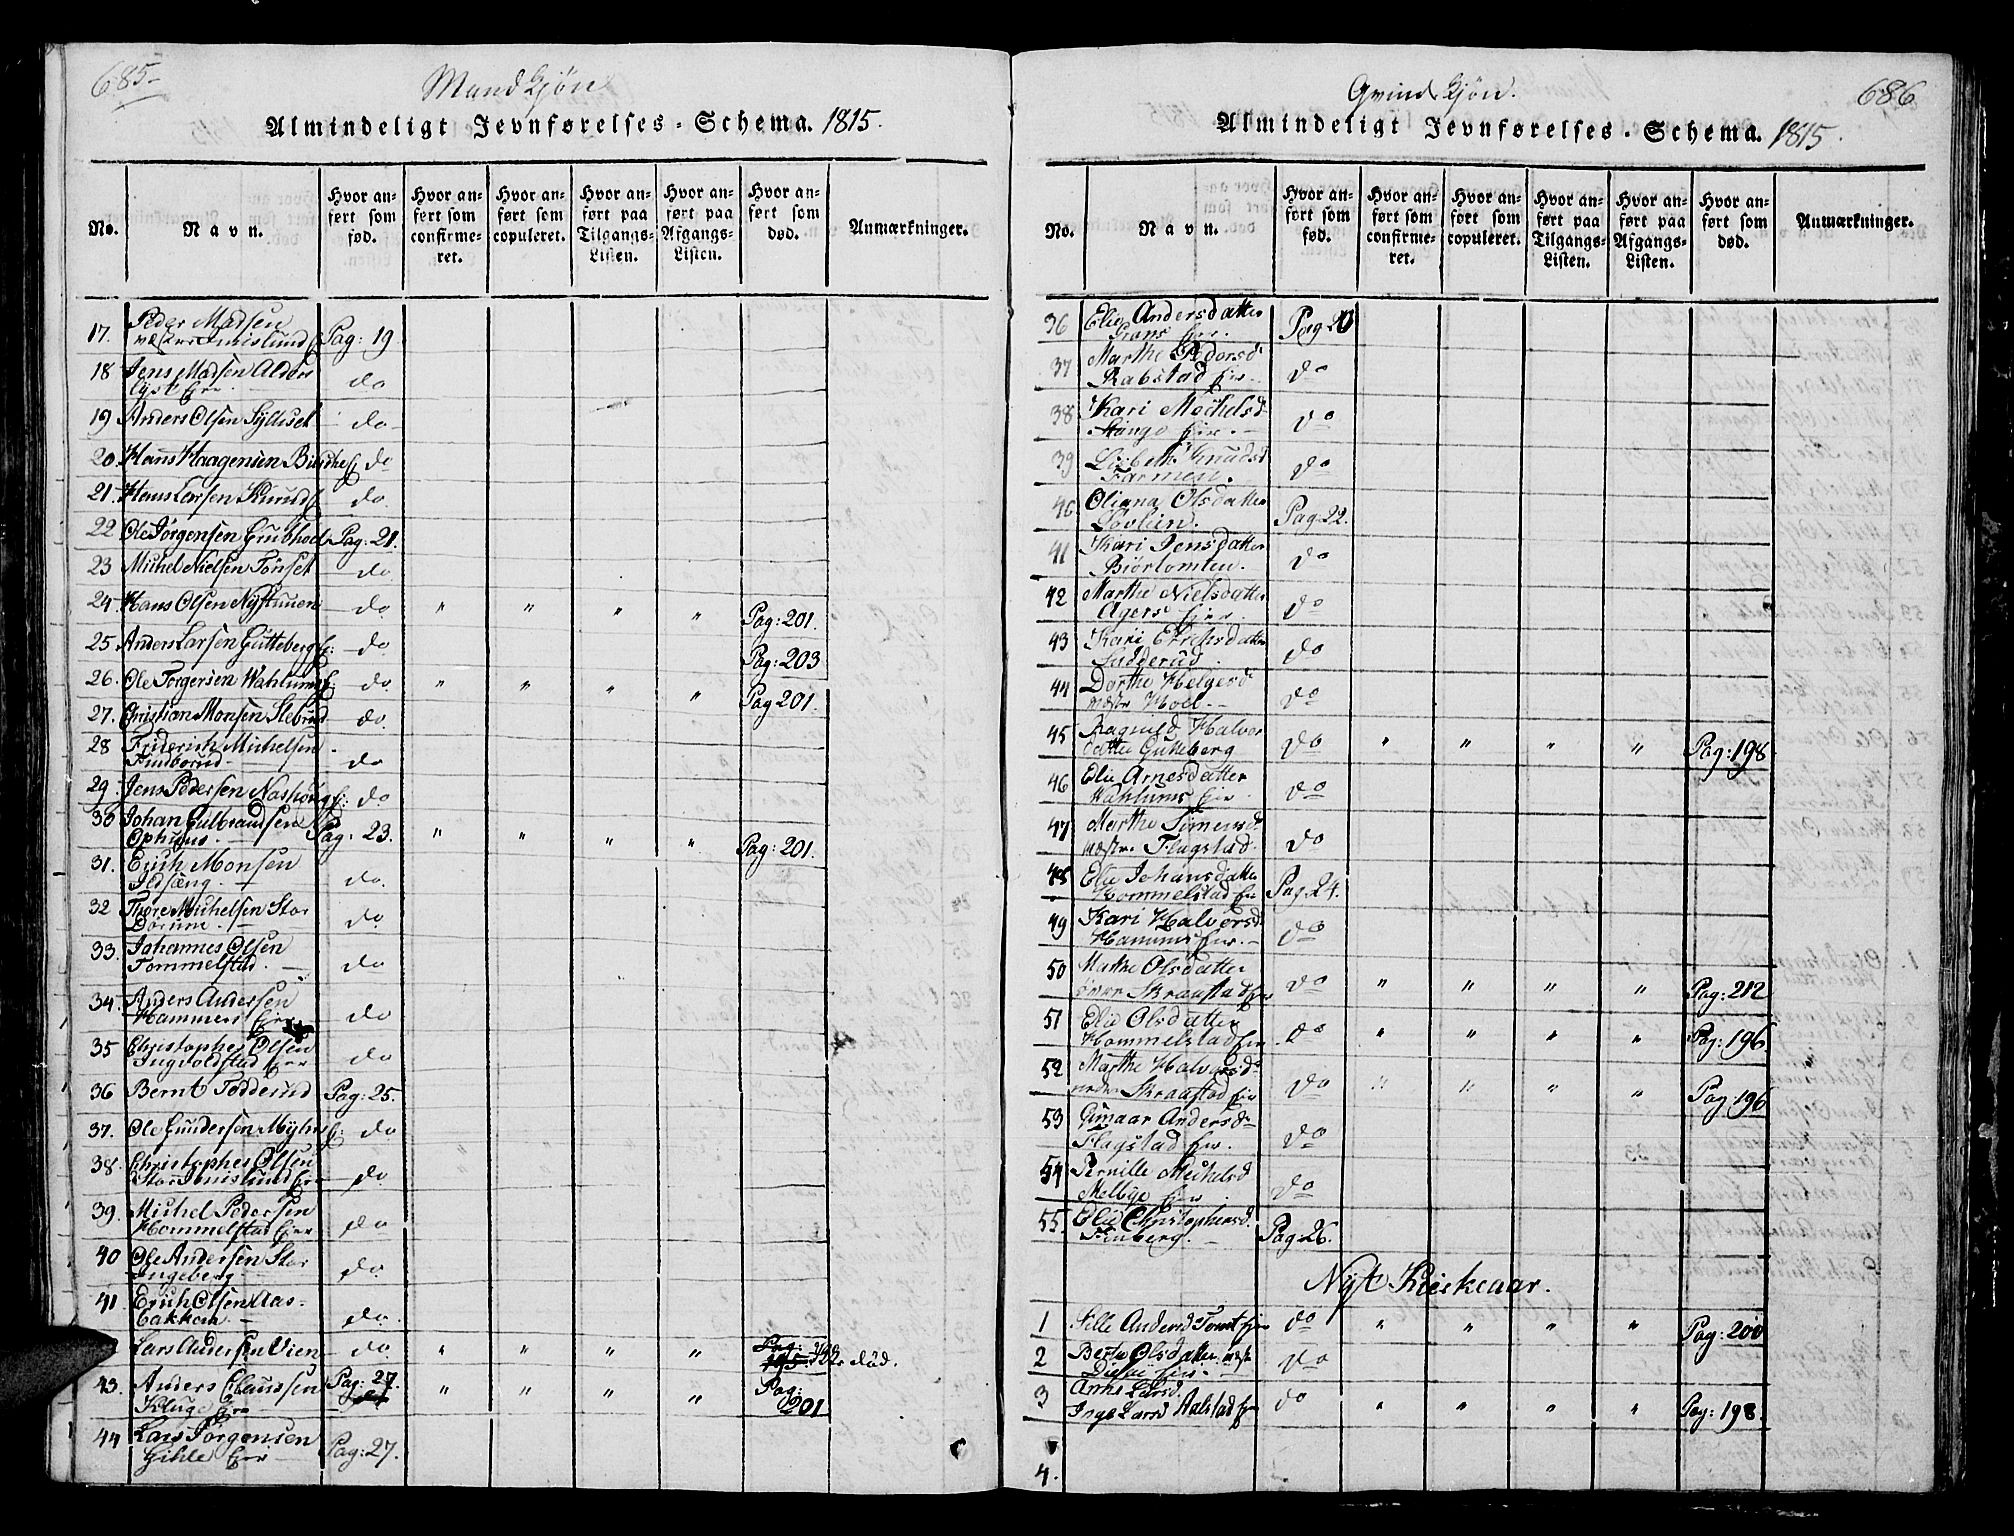 685
Mandkjøn
Almindeligt Jevnførelses-Schema. 1815.
No.
Navn.
Hvor anført som fød.
Hvor anført som confirmeret.
Hvor anført som copuleret.
Hvor anført paa Tilgangs-Listen.
Hvor anført paa Afgangs-Listen.
Hvor anført som død.
Anmærkninger.
17. Peder Madsen
Pag: 19.
18 Jens Madsen Alder
lyst Eje. do
19 Anders Olsen Sylliset do
20. Hans Haagensen do
21. Hans Larsen do.
22 Ole Jørgensen Pag: 21.
23 Michel Nielsen Tønset do
24. Hans Olsen Nystuuen do " " " " Pag: 201.
25. Anders Larsen Gutteberg do Pag: 203
26. Ole Torgersen Wahlums do " " " " Pag 201.
27. Christian Monsen do.
28 Friderich Michelsen
Findborud do
29. Jens Pedersen do
30 Johan Gulbrandsen
Ophuus Pag: 23. " " " " Pag: 201.
31. Erich Monsen
do.
32 Thore Michelsen Stor
Dørum do
33. Johannes Olsen
Tommelstad. do
34. Anders Andersen
Hammers Eje do
35 Christopher Olsen
Ingvoldstad Eje do
36 Bernt Todderud Pag: 25.
37. Ole Gundersen do
38. Christopher Olsen
Stor Imislund do
39. Michel Pedersen
Hommelstad Eje do
40 Ole Andersen Stor
Ingeberg do
41 Erich Olsen Aas-
bakken do.
Lars Andersen Vien do " " " " Pag: 195. død.
43. Anders Claussen
Kluge Eje Pag: 27. " " " " Pag: 201
44 Lars Jørgensen
Gihle Eje Pag: 27.
686
Qvindkjøn.
Almindeligt Jevnførelses-Schema. 1815.
No.
Navn.
Hvor anført som fød.
Hvor anført som confirmeret.
Hvor anført som copuleret.
Hvor anført paa Tilgangs-Listen.
Hvor anført paa Afgangs-Listen.
Hvor anført som død.
Anmærkninger.
36 Elie Andersdatter
Eje. Pag: 20
37 Marthe Pedersd
Rabstad Eje do
38 Kari Mechelsd
Stange Eje. do
39 Lisbeth Knudsd
Farmen. do
40 Oliana Olsdatter
Løvlien. Pag: 22.
41 Kari Jensdatter
Biørtomten. do
42 Marthe Nielsdatter
Agers Eje do
43 Kari Erichsdatter
do
44 Dorthe Helgesd
Hoel do
45 Ragnild Halvor
datter Gutteberg do " " " " Pag: 198
46 Elie Arnesdatter
Wahlums Eje. do
47 Marthe Simensd
Flagstad. do
48 Elie Johansdatter
Hommelstad Eje Pag. 24.
49 Kari Halvorsd
Hammers Eje. do
50 Marthe Olsdatter
Skraastad Eje do " " " " Pag: 212
51 Elie Olsdatter
Hommelstad Eje. do " " " " Pag: 196
52 Marthe Halvorsd
neder Skraastad Eje do " " " " Pag: 196
53 Gunaar Andersd
Flagstad Eje. do
54 Pernille Mechelsd
Melbye Eje do
55. Elie Christophersd.
Finberg. Pag: 26.
Nyt Kirkeaar.
1 Sille Andersd Tomt Eje do " " " " Pag: 200
2 Berte Olsdatter
do
3 Anne Larsd.
Inge Larsd Aalstad Eje do " " " " Pag: 198.
4.